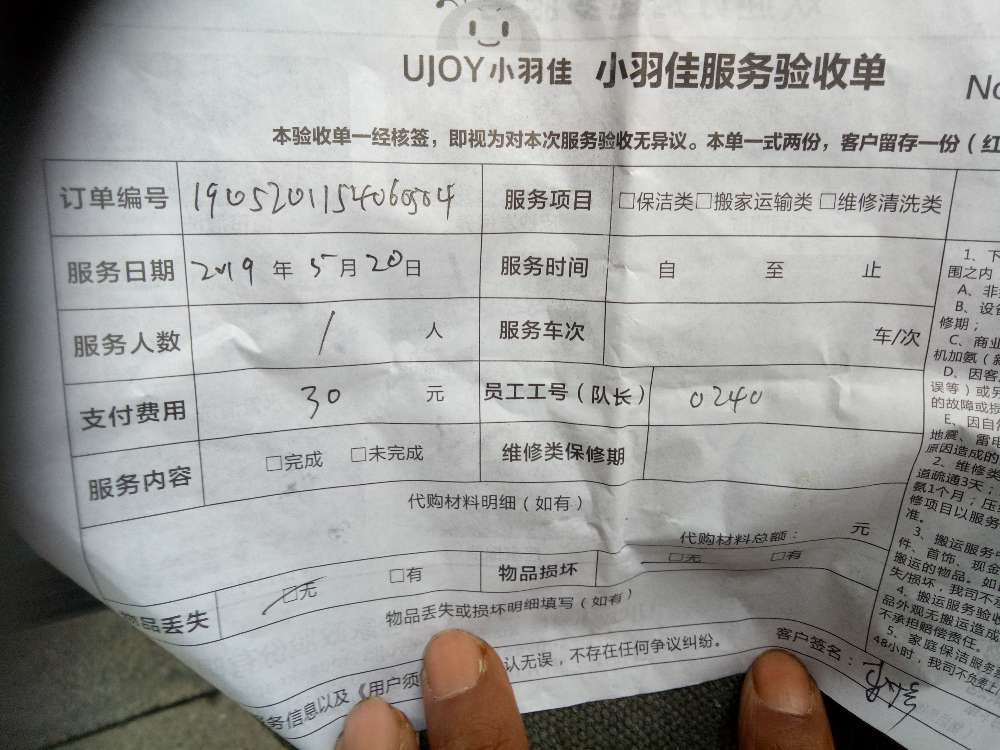 UJOY小羽佳 小羽佳服务验收单
No
本验收单一经核签，即视为对本次服务验收无异议。本单一式两份，客户留存一份（红
订单编号 190520115406 服务项目 □保洁类□搬家运输类 □维修清洗类
服务日期 2019 年 5 月 20 日 服务时间 自 至 止
服务人数 1 人 服务车次 车/次
支付费用 30 元 员工工号（队长） 0240
服务内容 □完成 □未完成 维修类保修期
代购材料明细（如有）
代购材料总额： 元
品丢失 □无 □有 物品损坏 □无 □有
物品丢失或损坏明细填写（如有）
务信息以及《用户须 认无误，不存在任何争议纠纷。
客户签名：
1、下
围之内
A、非
B、设备
修期；
C、商业
机加氨（新
D、因客
误等）或另
的故障或损
E、因自然
地震、雷电
原因造成的
2、维修类
道疏通3天；
氨1个月；压
修项目以服务
准。
3、搬运服务中
件、首饰、现金
搬运的物品。如
失/损坏，我司不
4、搬运服务验收
品外观无搬运造成
不承担赔偿责任。
5、家庭保洁服务
48小时，我司不负责上